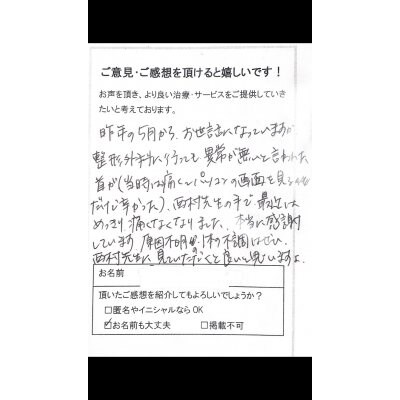 ご意見・ご感想を頂けると嬉しいです！
お声を頂き、より良い治療・サービスをご提供していき
たいと考えております。
昨年の5月から、お世話になっていますが
整形外科に行っても異常が無いと言われた
首が(当時は痛くてパソコンの画面を見る
だけで辛かった)、西村先生の手で最近は
めっきり痛くなくなりました。本当に感謝
しています。原因不明の体の不調はぜひ、
西村先生に見ていただくと良いと思いますよ。
お名前
頂いたご感想を紹介してもよろしいでしょうか？
□匿名やイニシャルならOK
☑お名前も大丈夫 □掲載不可